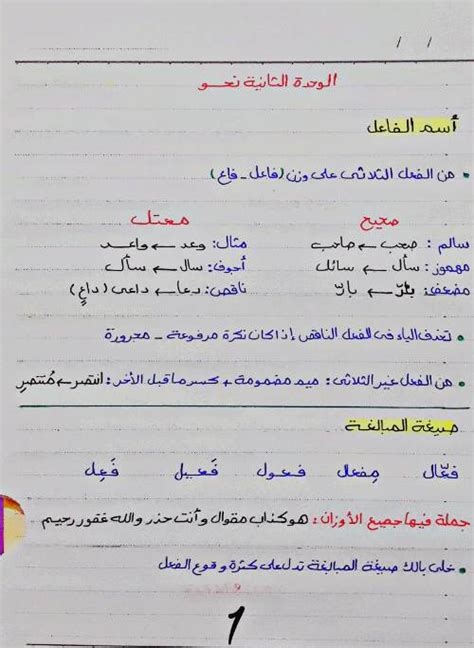 / /
الوحدة الثانية نحو
أسم الفاعل
• من الفعل الثلاثى على وزن (فاعل - فاعٍ)
صحيح معتل
سالم : صحب ← صاحب مثال: وعد ← واعد
مهموز: سأل ← سائل أجوف: سال ← سائل
مضعف: بَرّ ← بارّ ناقص: دعا ← داعى (داعٍ)
• تحذف الياء فى الفعل الناقص إذا كان نكرة مرفوعة - مجرورة
• من الفعل غير الثلاثى: ميم مضمومة + كسر ما قبل الأخر: انتصر ← مُنتصِر
صيغة المبالغة
فعّال مِفعال فعول فَعيل فَعِل
جملة فيها جميع الأوزان: هو كذاب مقوال وأنت حذر والله غفور رحيم
• خلى بالك صيغة المبالغة تدل على كثرة وقوع الفعل
1